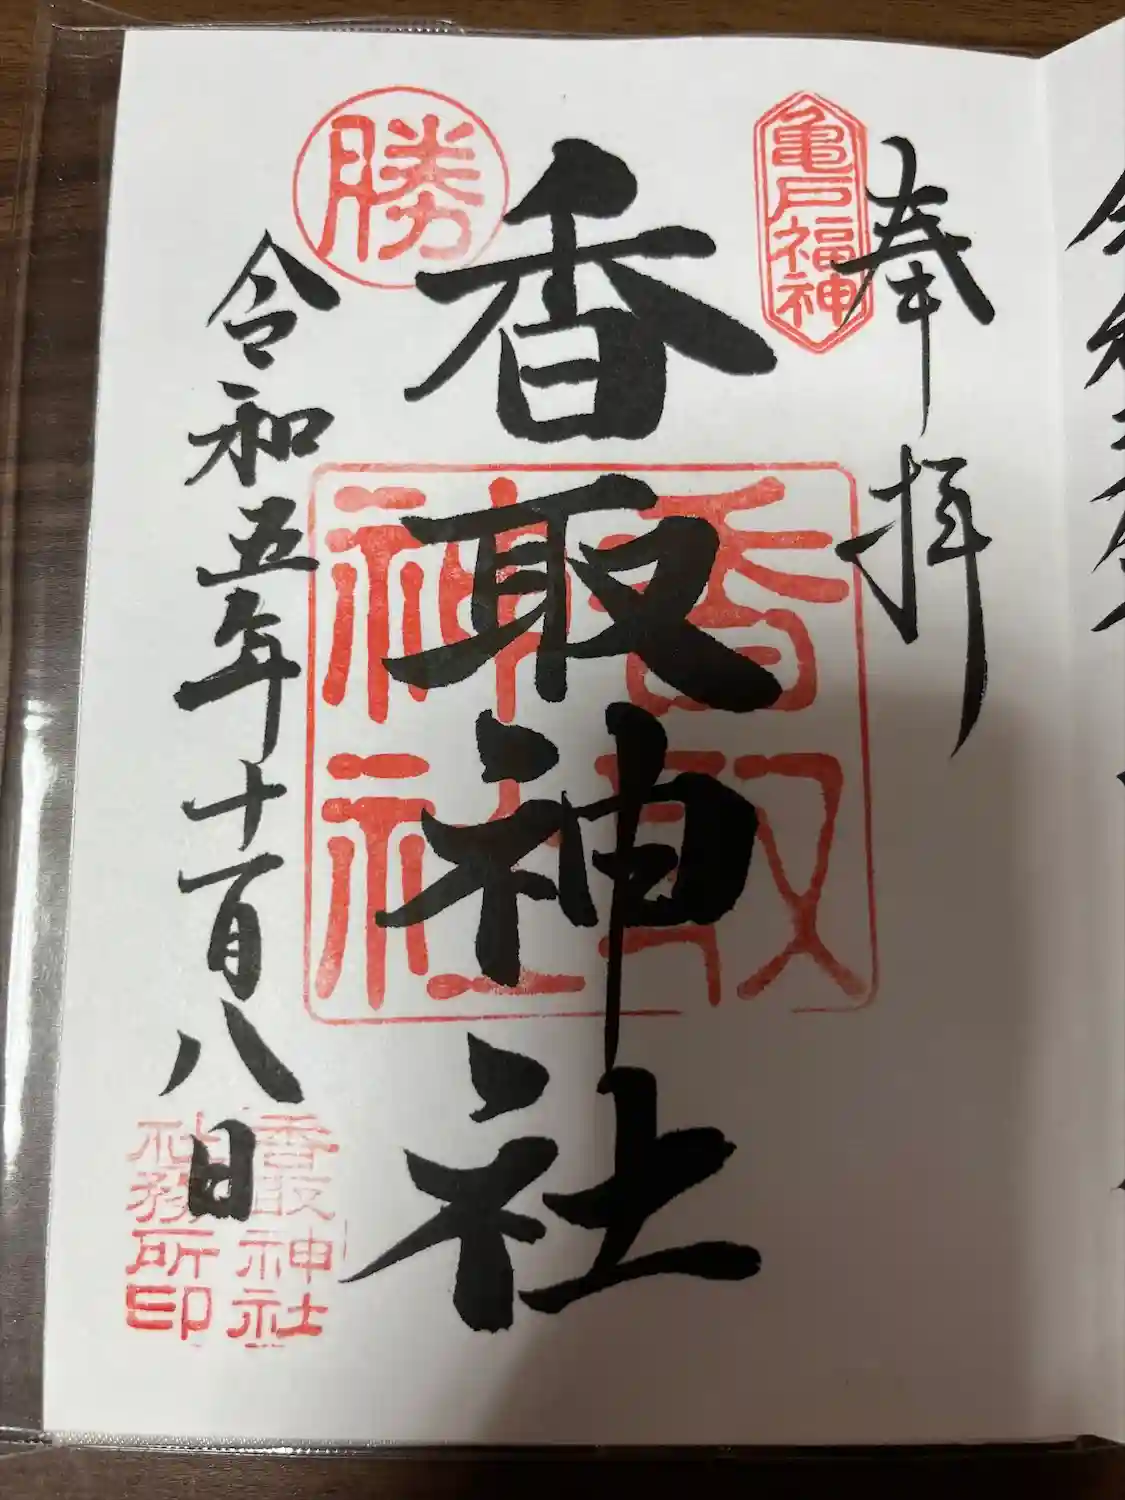 奉拝
亀戸福神
香取神社
香取
神社
勝
令和五年十一月八日
香取神社
社務所印